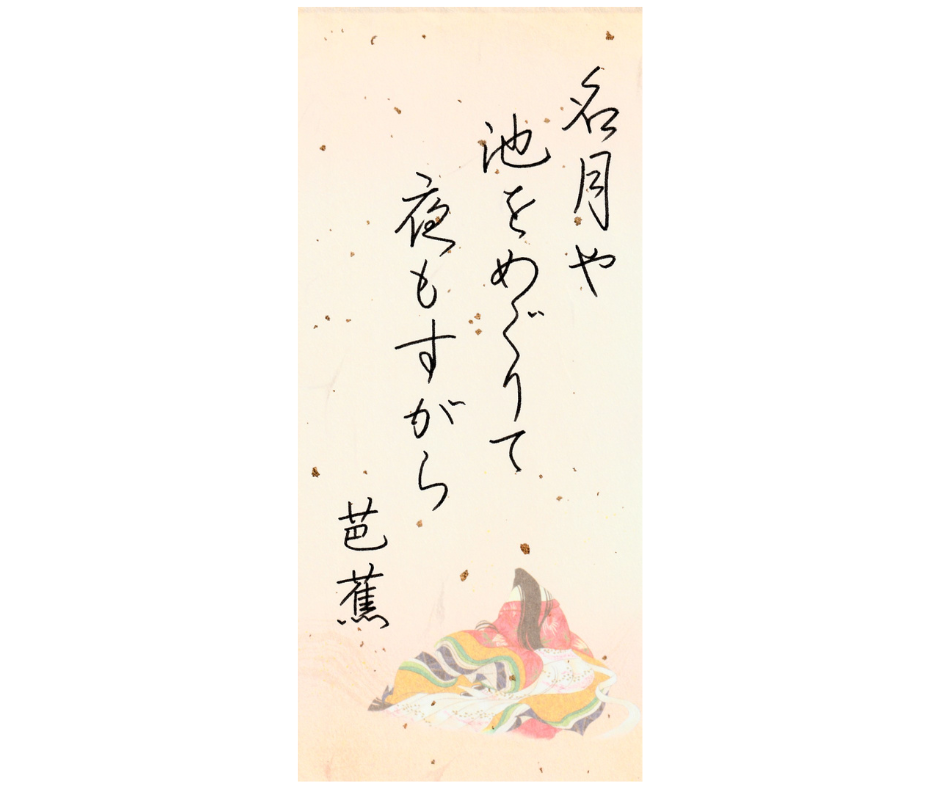 名月や
池をめぐりて
夜もすがら
芭蕉